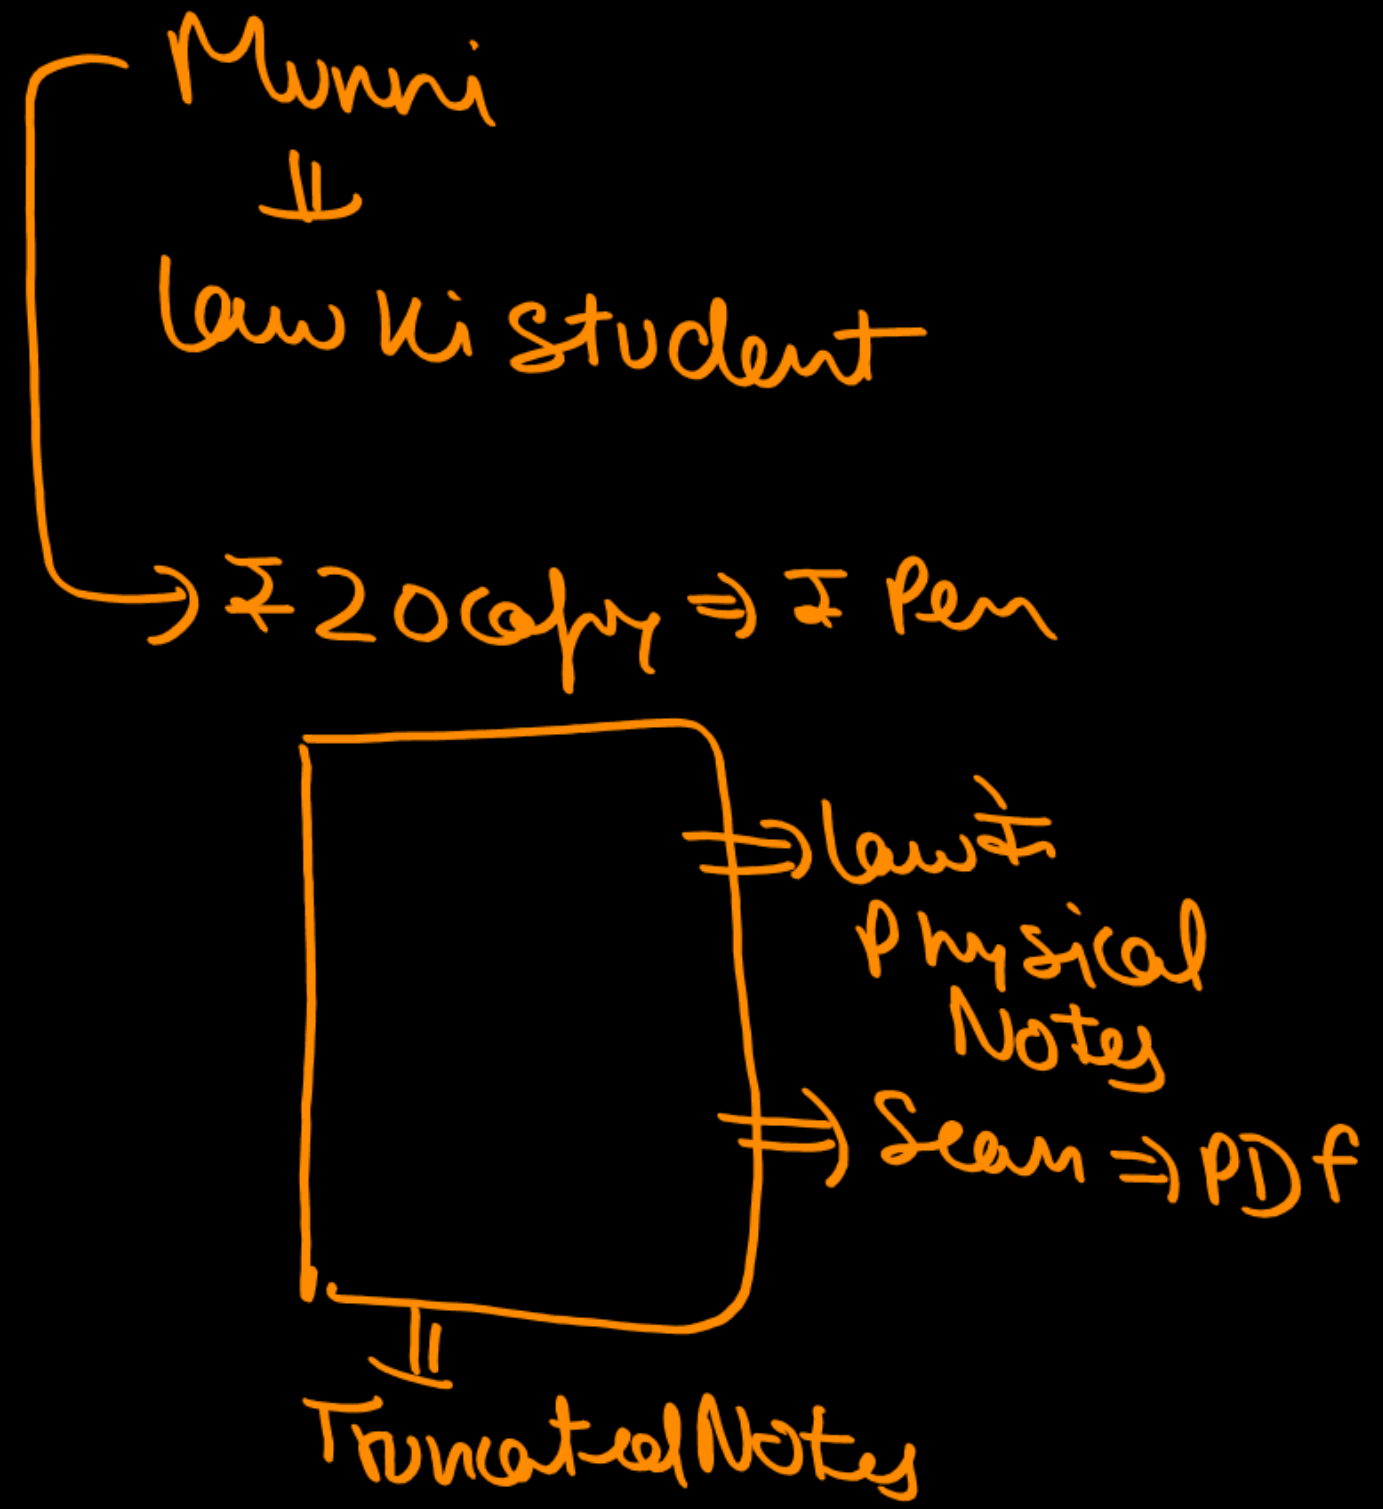 Munni
⇓
Law Ki Student
→ ₹ 20 Copy ⇒ ₹ Pen
⇒ Law के
Physical
Notes
⇒ Scan ⇒ PDF
⇓
Truncated Notes